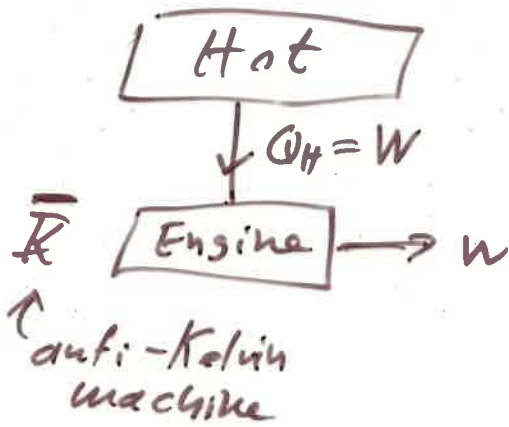 Hot
Q_H = W
K̅ Engine → W
anti-Kelvin
machine